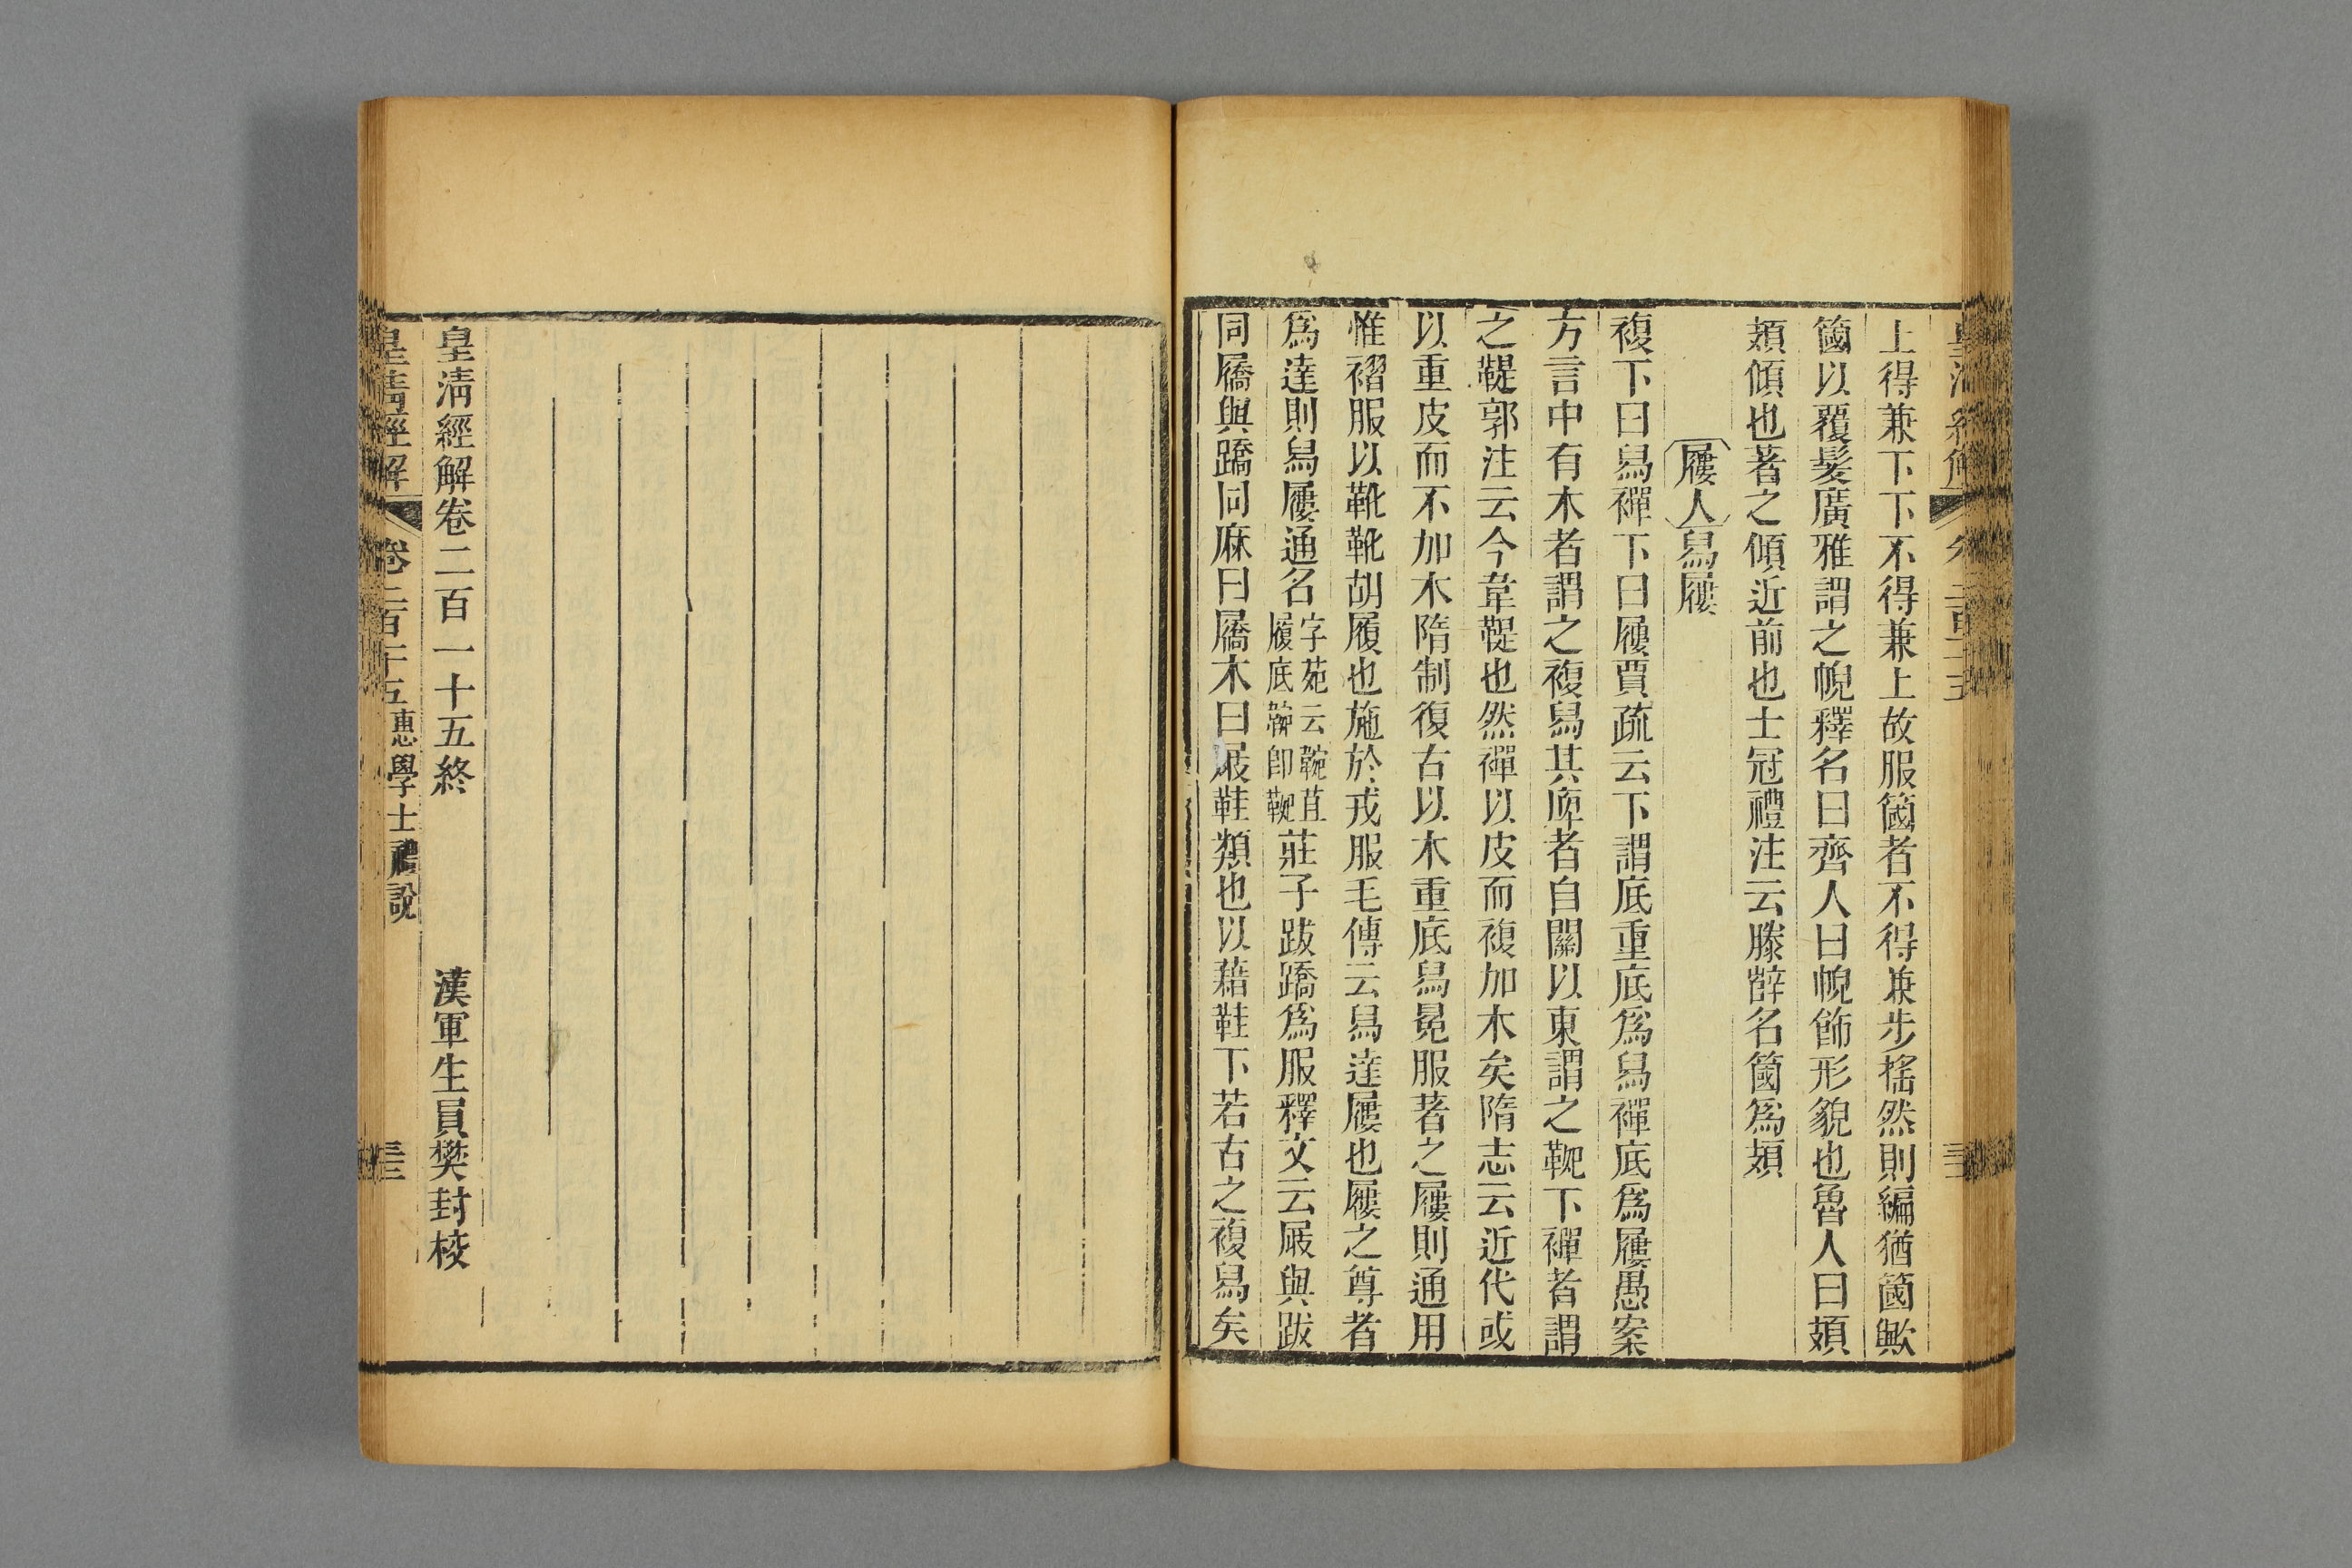 上得兼下下不得兼上故服簂者不得兼步搖然則編猶簂歟
簂以覆髮廣雅謂之帨釋名曰齊人曰帨飾形貌也魯人曰頍
頍傾也著之傾近前也士冠禮注云滕薛名簂爲頍
屨人舄屨
複下曰舄襌下曰屨賈疏云下謂底重底爲舄襌底爲屨愚案
方言中有木者謂之複舄其庳者自關以東謂之鞔下襌者謂
之鞮郭注云今韋鞮也然襌以皮而複加木矣隋志云近代或
以重皮而不加木隋制復古以木重底舄冕服著之屨則通用
惟褶服以靴靴胡履也施於戎服毛傳云舄達屨也屨之尊者
爲達則舄屨通名
字苑云鞔苴
履底
莊子跋蹻爲服釋文云屐與跋
同屩與蹻同麻曰屩木曰屐鞋類也以藉鞋下若古之複舄矣
皇清經解卷二百一十五終
漢軍生員樊封校
皇清經解
卷二百十五
惠學士禮說